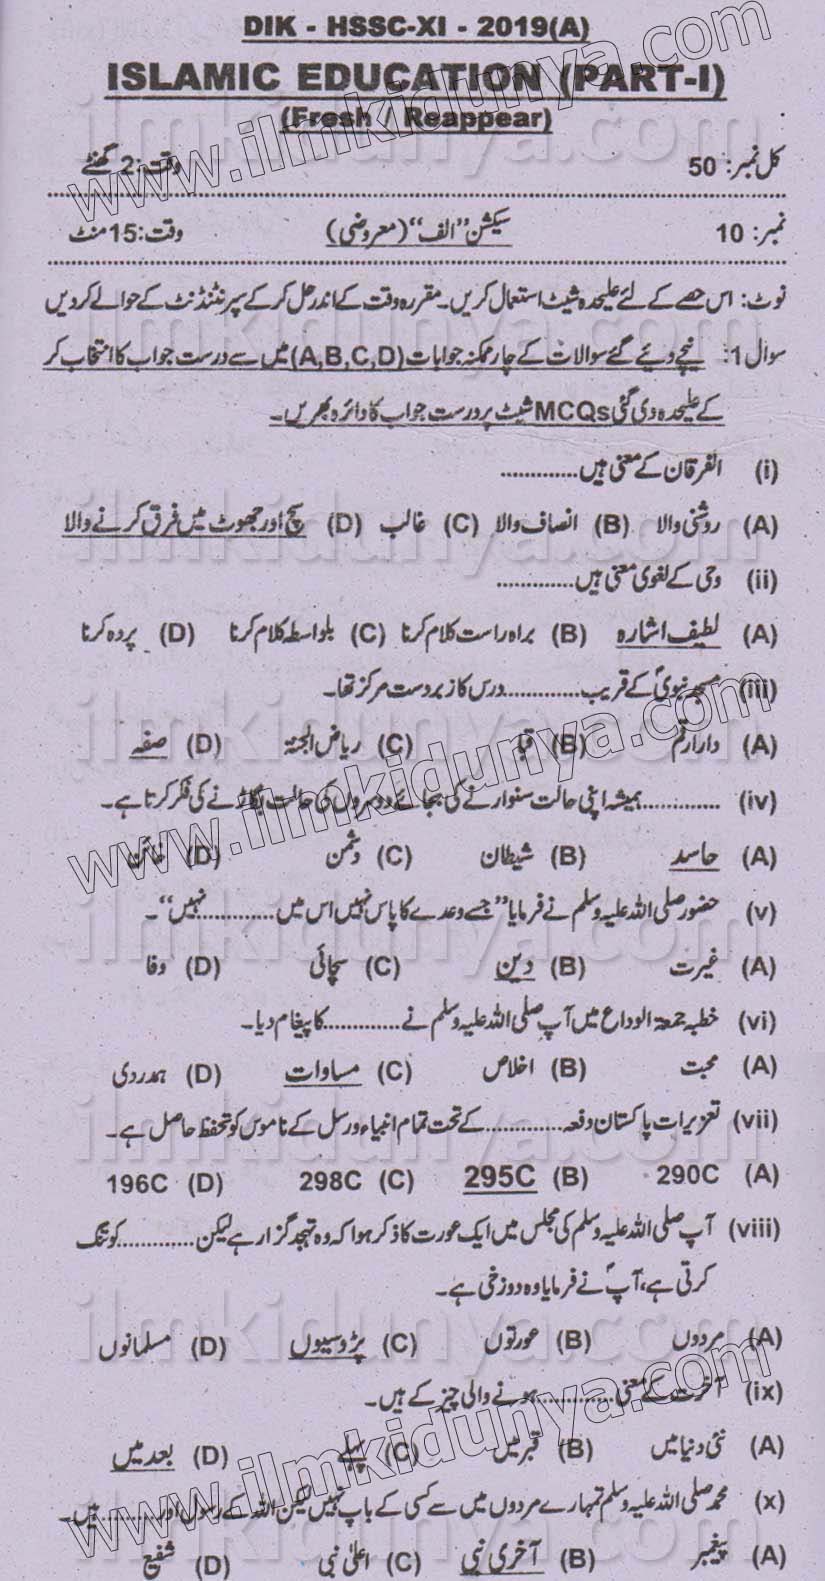 DIK - HSSC-XI - 2019(A)
ISLAMIC EDUCATION (PART-I)
(Fresh / Reappear)
کل نمبر: 50 وقت: 2 گھنٹے
نمبر: 10 سیکشن "الف" (معروضی) وقت: 15 منٹ
نوٹ: اس حصے کے لئے علیحدہ شیٹ استعمال کریں۔ مقررہ وقت کے اندر حل کر کے سپرنٹنڈنٹ کے حوالے کردیں
سوال 1: نیچے دیئے گئے سوالات کے چار ممکنہ جوابات (A,B,C,D) میں سے درست جواب کا انتخاب کر
کے علیحدہ دی گئی MCQs شیٹ پر درست جواب کا دائرہ بھریں۔
(i) الفرقان کے معنی ہیں.............
(A) روشنی والا (B) انصاف والا (C) غالب (D) سچ اور جھوٹ میں فرق کرنے والا
(ii) وحی کے لغوی معنی ہیں.............
(A) لطیف اشارہ (B) براہ راست کلام کرنا (C) بلواسطہ کلام کرنا (D) پردہ کرنا
(iii) مسجد نبویؐ کے قریب.............درس کا زبردست مرکز تھا۔
(A) دار ارقم (B) قبا (C) ریاض الجنۃ (D) صفہ
(iv) .............ہمیشہ اپنی حالت سنوارنے کی بجائے دوسروں کی حالت بگاڑنے کی فکر کرتا ہے۔
(A) حاسد (B) شیطان (C) دشمن (D) خائن
(v) حضور صلی اللہ علیہ وسلم نے فرمایا "جسے وعدے کا پاس نہیں اس میں.............نہیں"۔
(A) غیرت (B) دین (C) سچائی (D) وفا
(vi) خطبہ جمعۃ الوداع میں آپ صلی اللہ علیہ وسلم نے.............کا پیغام دیا۔
(A) محبت (B) اخلاص (C) مساوات (D) ہمدردی
(vii) تعزیرات پاکستان دفعہ.............کے تحت تمام انبیاء ورسل کے ناموس کو تحفظ حاصل ہے۔
(A) 290C (B) 295C (C) 298C (D) 196C
(viii) آپ صلی اللہ علیہ وسلم کی مجلس میں ایک عورت کا ذکر ہوا کہ وہ تہجد گزار ہے لیکن.............کو تنگ
کرتی ہے، آپؐ نے فرمایا وہ دوزخی ہے۔
(A) مردوں (B) عورتوں (C) پڑوسیوں (D) مسلمانوں
(ix) آخرت کے معنی.............ہونے والی چیز کے ہیں۔
(A) نئی دنیا میں (B) قبر میں (C) پہلے (D) بعد میں
(x) محمد صلی اللہ علیہ وسلم تمہارے مردوں میں سے کسی کے باپ نہیں لیکن اللہ کے رسول اور.............ہیں۔
(A) پیغمبر (B) آخری نبی (C) اعلیٰ نبی (D) شفیع
www.ilmkidunya.com
www.ilmkidunya.com
www.ilmkidunya.com
ilmkidunya.com
ilmkidunya.com
ilmkidunya.com
ilmkidunya.com
ilmkidunya.com
ilmkidunya.com
ilmkidunya.com
ilmkidunya.com